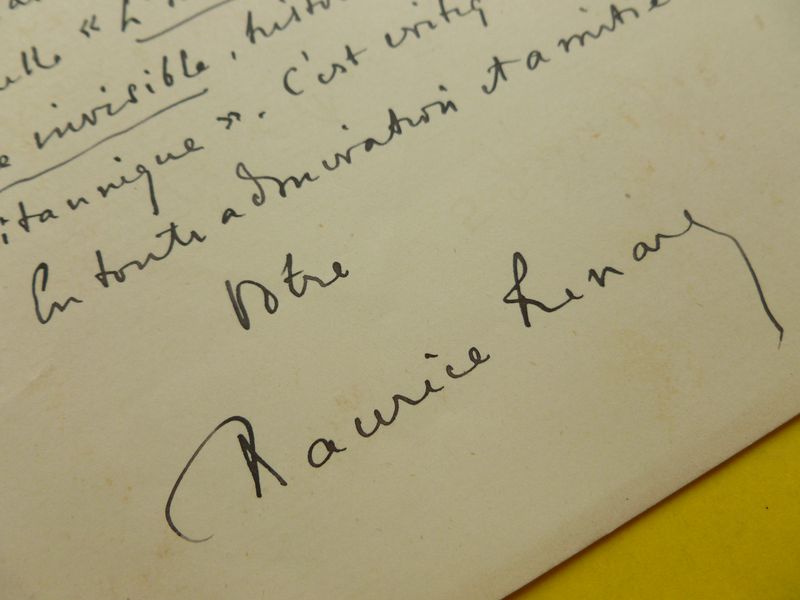 elle « L'
invisible, histo
itannique ». C'est
En toute admiration et amitié
Votre
Maurice Renard